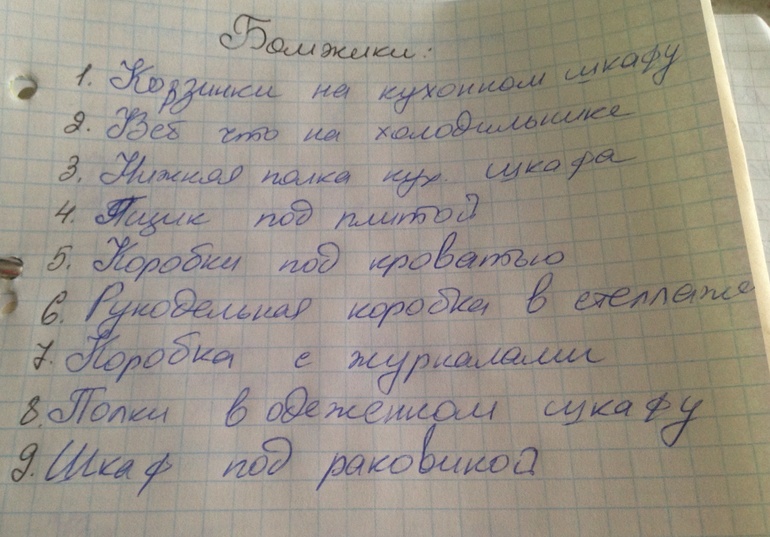 Бомжики:
1. Корзинки на кухонном шкафу
2. Всё что на холодильнике
3. Нижняя полка кух. шкафа
4. Ящик под плитой
5. Коробки под кроватью
6. Рукодельная коробка в стеллаже
7. Коробка с журналами
8. Полки в одеженном шкафу
9. Шкаф под раковиной